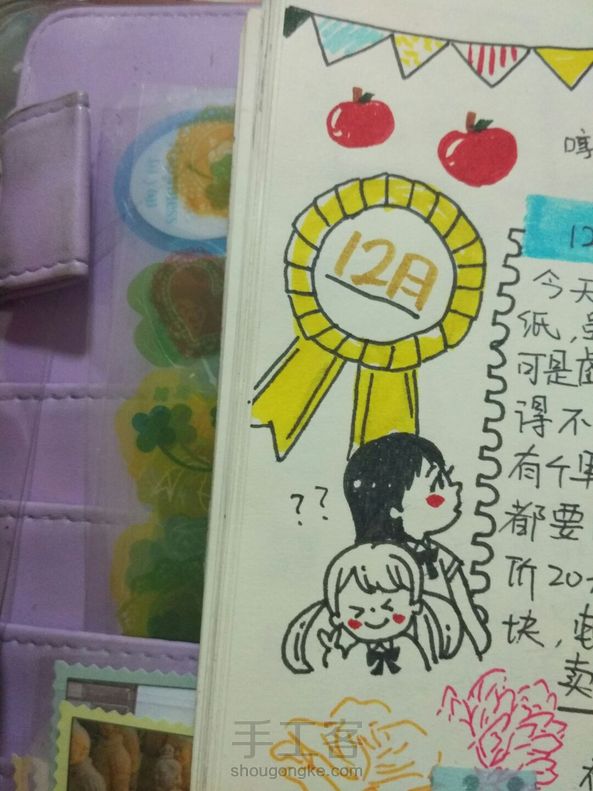 12月
12
今天
纸,虽
可是
得不
有个
都要
所20
块,
卖
??
手工客
shougongke.com